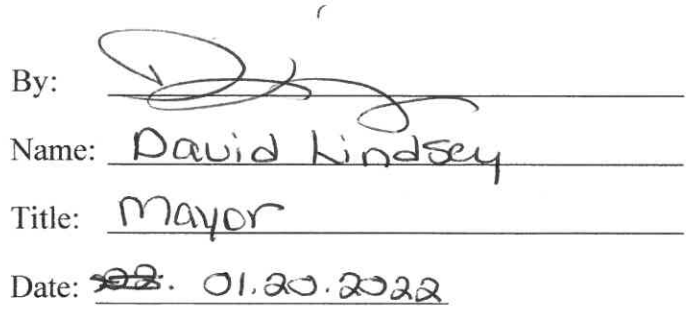 By:
Name: David Lindsey
Title: Mayor
Date: 01.20.2022